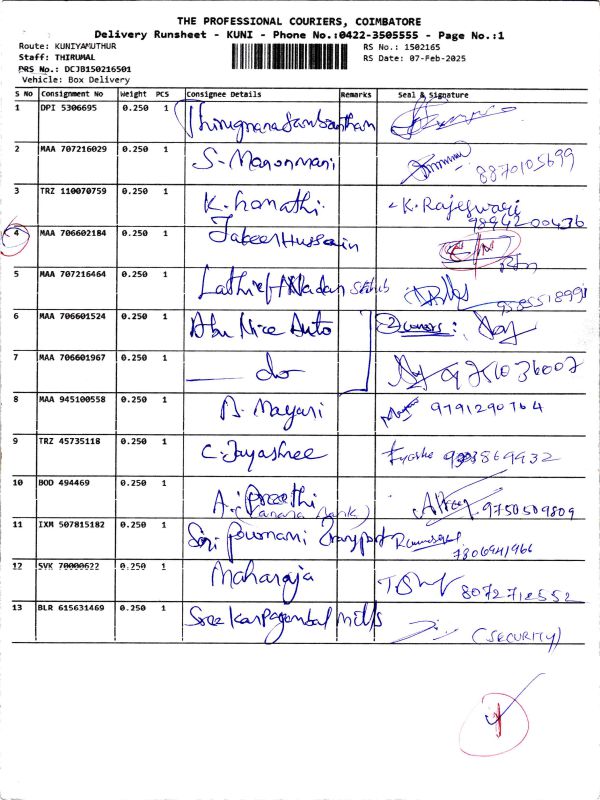 THE PROFESSIONAL COURIERS, COIMBATORE
Delivery Runsheet - KUNI - Phone No.:0422-3505555 - Page No.:1
Route: KUNIYAMUTHUR RS No.: 1502165
Staff: THIRUMAL RS Date: 07-Feb-2025
PRS No.: DCJB150216501
Vehicle: Box Delivery
S No Consignment No Weight PCS Consignee Details Remarks Seal & Signature
1 DPI 5306695 0.250 1
2 MAA 707216029 0.250 1 S. Manonmani 8870105699
3 TRZ 110070759 0.250 1 K. K. Rajeswari
9894200436
4 MAA 706602184 0.250 1 Jakeer Hussain
5 MAA 707216464 0.250 1 Lathief Sahib
6 MAA 706601524 0.250 1 Abu Nice Auto
7 MAA 706601967 0.250 1 do
8 MAA 945100558 0.250 1 Mayari 9791290764
9 TRZ 45735118 0.250 1 C. Jayashree
10 BOD 494469 0.250 1 A. Preethi
(Canara Bank) 9750509809
11 IXM 507815182 0.250 1 Sri Pournami Transport
7806941966
12 SVK 70000622 0.250 1 Maharaja 8072712552
13 BLR 615631469 0.250 1 Sree Karpagambal mills (SECURITY)